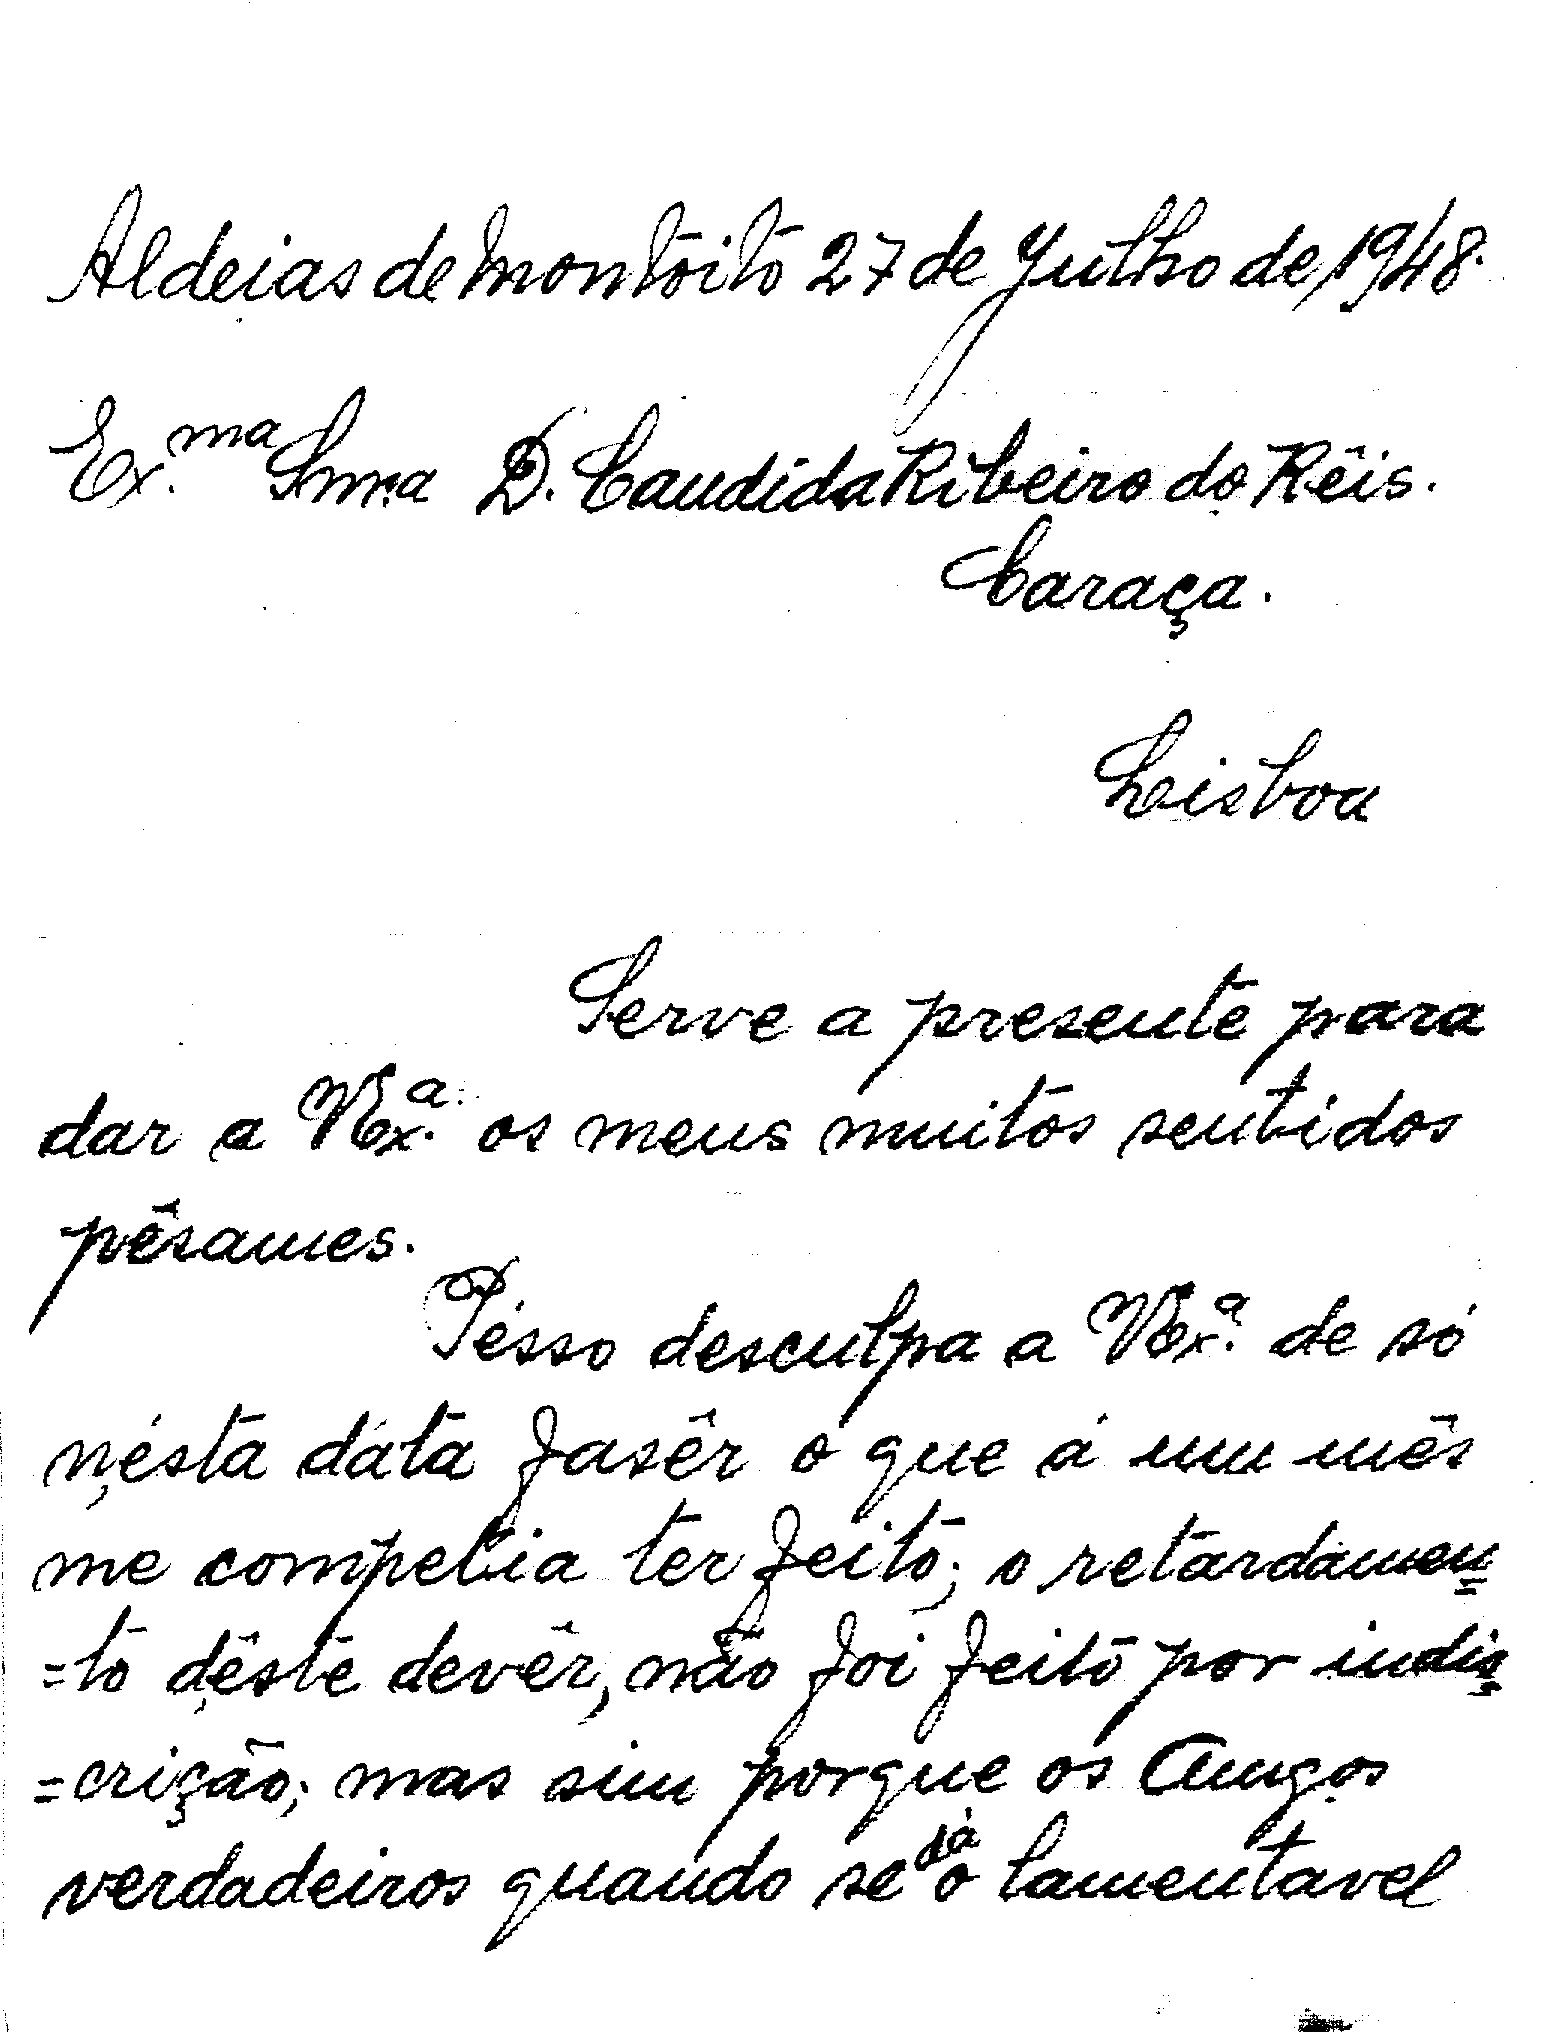 Aldeias de Montoito 27 de Julho de 1948.
Ex.ma Snra D. Candida Ribeiro do Rêis.
Caraça.
Lisboa
Serve a presente para
dar a VEx.a os meus muitos sentidos
pêsames.
Pésso desculpa a VEx.a de só
nésta dáta fasêr o que á um mês
me competia ter feito; o retardamen=
=to dêste devêr, não foi feito por indis=
=crição; mas sim porque os Amigos
verdadeiros quando se dá o lamentavel